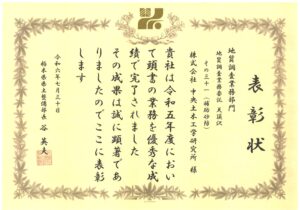 表彰状
地質調査業務部門
地質調査業務委託 天頂沢
その三十一(補助砂防)
株式会社 中央土木工学研究所 様
貴社は令和五年度におい
て頭書の業務を優秀な成
績で完了されました
その成果は誠に顕著であ
りましたのでここに表彰
します
令和六年七月三十日
栃木県県土整備部長 谷 英夫